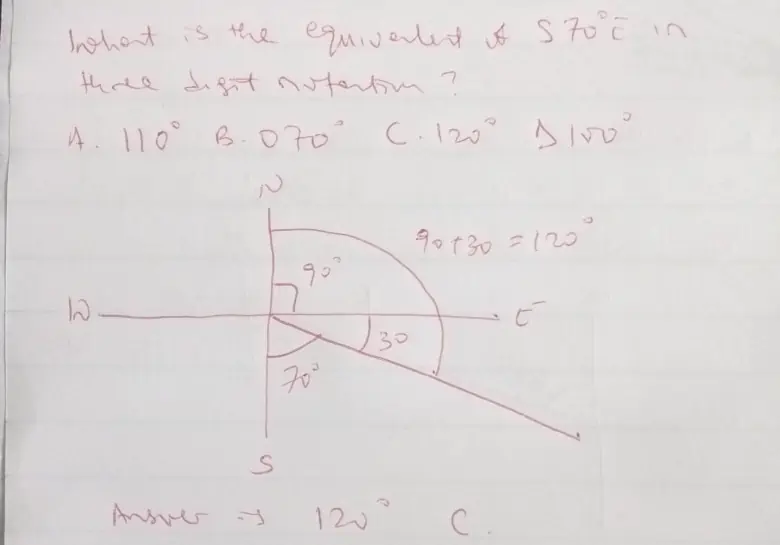 What is the equivalent of S70°E in
three digit notation?
A. 110° B. 070° C. 120° D 100°
N
90+30 = 120°
90°
W E
30
70°
S
Answer → 120° C.